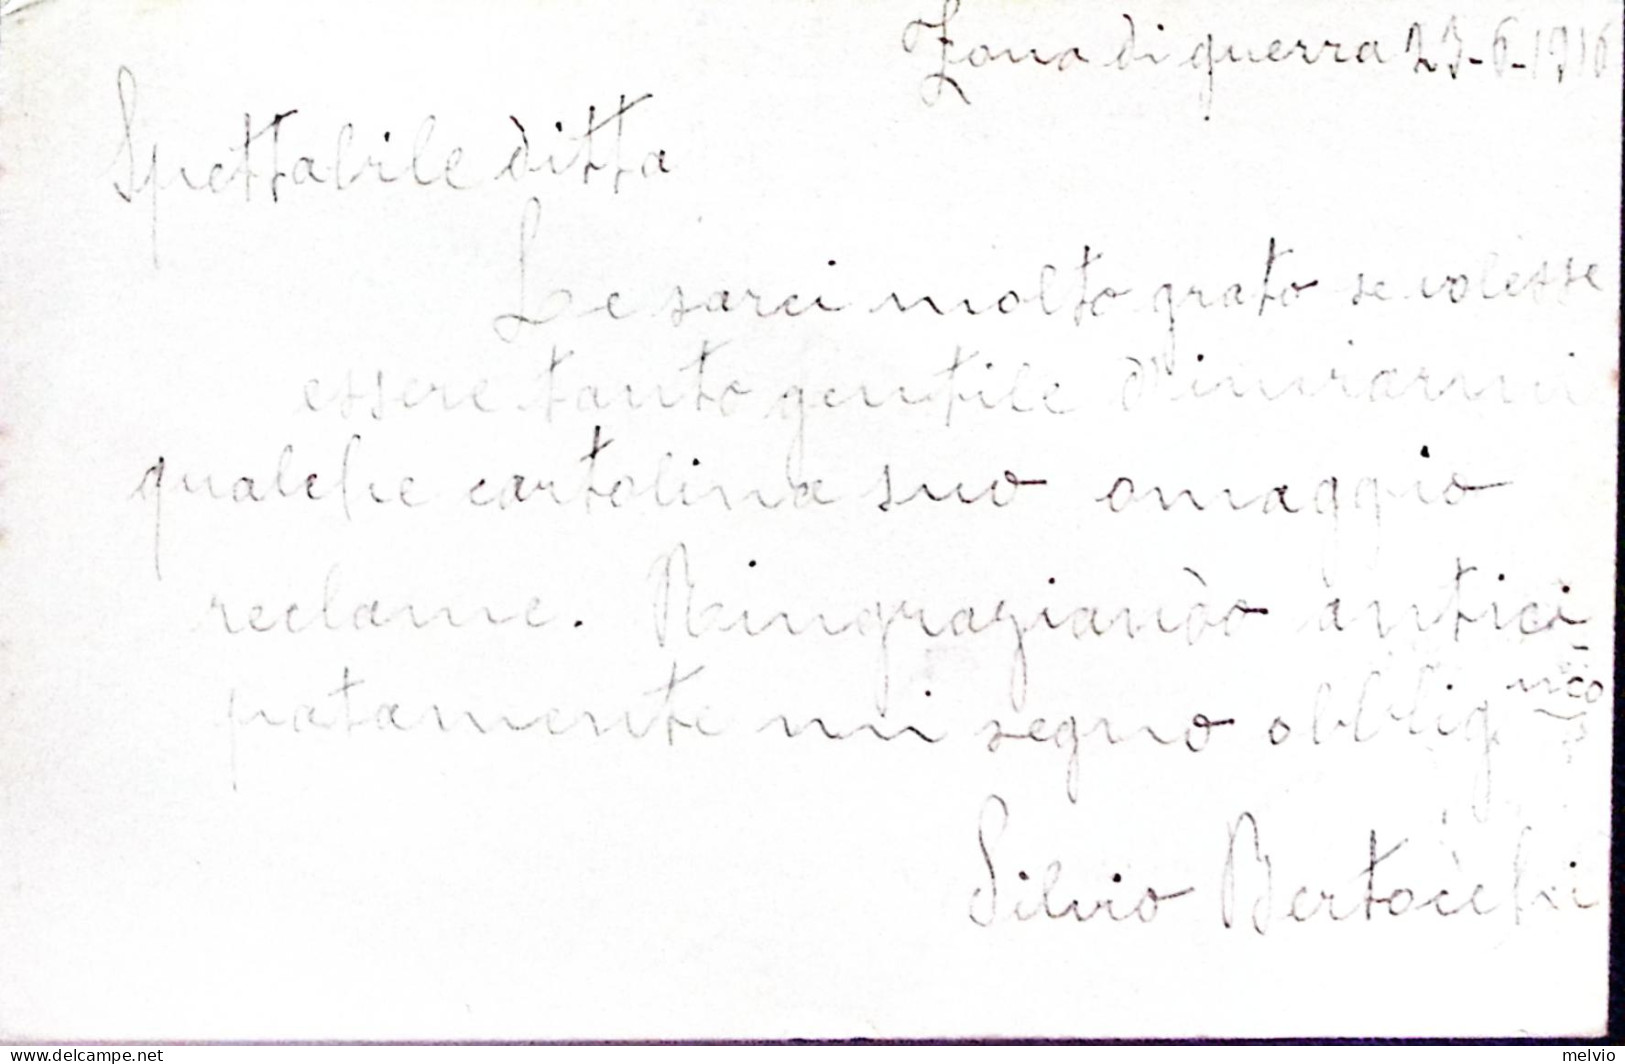 Zona di guerra 23-6-1916
Spettabile ditta
Le sarei molto grato se volesse
essere tanto gentile d'inviarmi
qualche cartolina suo omaggio
reclame. Ringraziando antici
patamente mi segno obblig
Silvio Bertocchi
www.delcampe.net
melvio